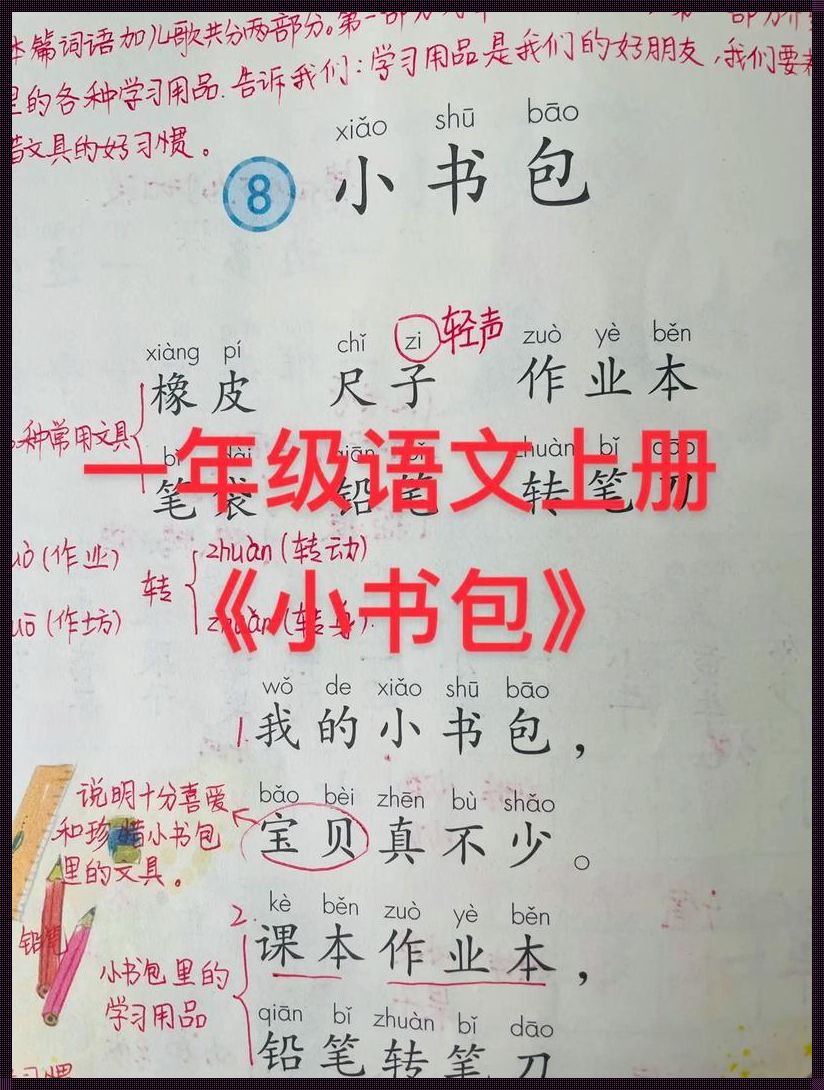 本篇词语加儿歌共分两部分。第一部分
里的各种学习用品.告诉我们:学习用品是我们的好朋友,我们要
惜文具的好习惯。
xiǎo shū bāo
8 小书包
xiàng pí chǐ zi 轻声 zuò yè běn
橡皮 尺子 作业本
种常用文具
笔袋 铅笔 转笔刀
一年级语文上册
(作业) 转 zhuàn(转动)
(作坊) zhuǎn(转身)
《小书包》
wǒ de xiǎo shū bāo
1.我的小书包,
说明十分喜爱
和珍惜小书包
里的文具。
bǎo bèi zhēn bù shǎo
宝贝真不少。
铅笔
2. kè běn zuò yè běn
课本作业本,
小书包里的
学习用品
qiān bǐ zhuàn bǐ dāo
铅笔转笔刀
习惯